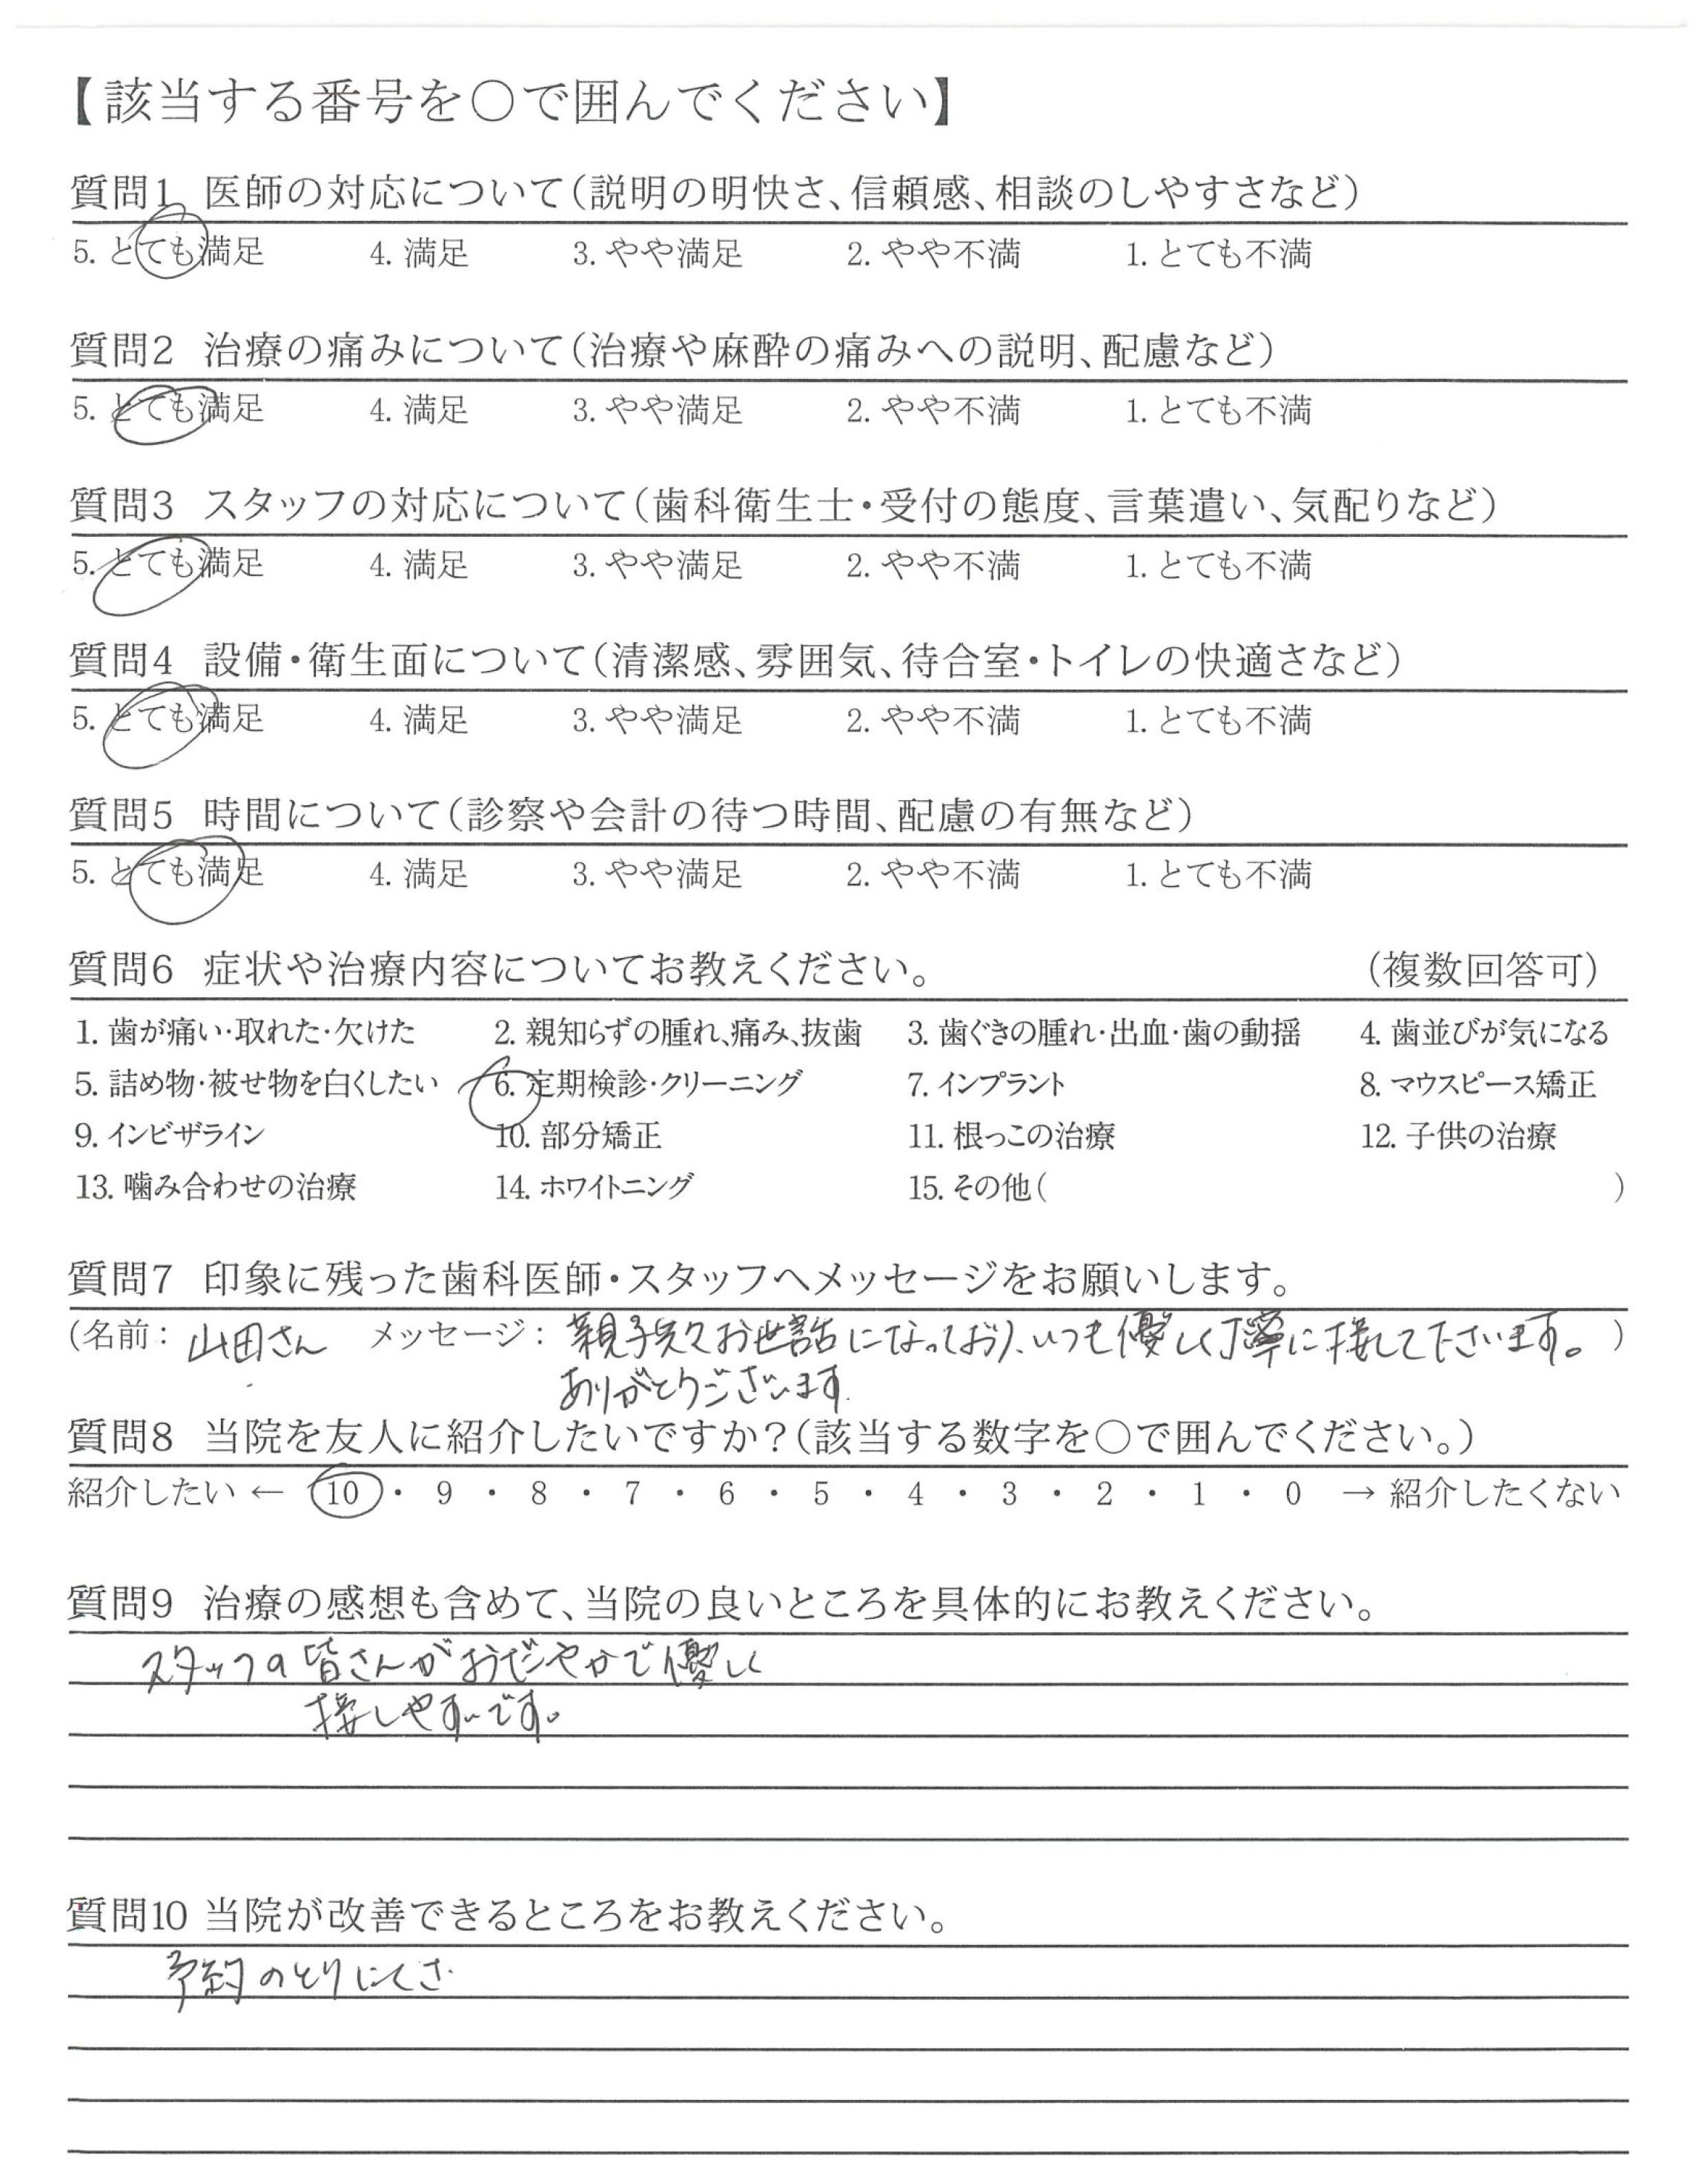 【該当する番号を○で囲んでください】
質問1 医師の対応について（説明の明快さ、信頼感、相談のしやすさなど）
5. とても満足 4. 満足 3. やや満足 2. やや不満 1. とても不満
質問2 治療の痛みについて（治療や麻酔の痛みへの説明、配慮など）
5. とても満足 4. 満足 3. やや満足 2. やや不満 1. とても不満
質問3 スタッフの対応について（歯科衛生士・受付の態度、言葉遣い、気配りなど）
5. とても満足 4. 満足 3. やや満足 2. やや不満 1. とても不満
質問4 設備・衛生面について（清潔感、雰囲気、待合室・トイレの快適さなど）
5. とても満足 4. 満足 3. やや満足 2. やや不満 1. とても不満
質問5 時間について（診察や会計の待つ時間、配慮の有無など）
5. とても満足 4. 満足 3. やや満足 2. やや不満 1. とても不満
質問6 症状や治療内容についてお教えください。 （複数回答可）
1. 歯が痛い・取れた・欠けた 2. 親知らずの腫れ、痛み、抜歯 3. 歯ぐきの腫れ・出血・歯の動揺 4. 歯並びが気になる
5. 詰め物・被せ物を白くしたい 6. 定期検診・クリーニング 7. インプラント 8. マウスピース矯正
9. インビザライン 10. 部分矯正 11. 根っこの治療 12. 子供の治療
13. 噛み合わせの治療 14. ホワイトニング 15. その他（ ）
質問7 印象に残った歯科医師・スタッフへメッセージをお願いします。
（名前： 山田さん メッセージ： 親子共々お世話になっており、いつも優しく丁寧に接して下さいます。）
ありがとうございます.
質問8 当院を友人に紹介したいですか？（該当する数字を○で囲んでください。）
紹介したい ← 10 ・ 9 ・ 8 ・ 7 ・ 6 ・ 5 ・ 4 ・ 3 ・ 2 ・ 1 ・ 0 → 紹介したくない
質問9 治療の感想も含めて、当院の良いところを具体的にお教えください。
スタッフの皆さんがおだやかで優しく
接しやすいです。
質問10 当院が改善できるところをお教えください。
予約のとりにくさ